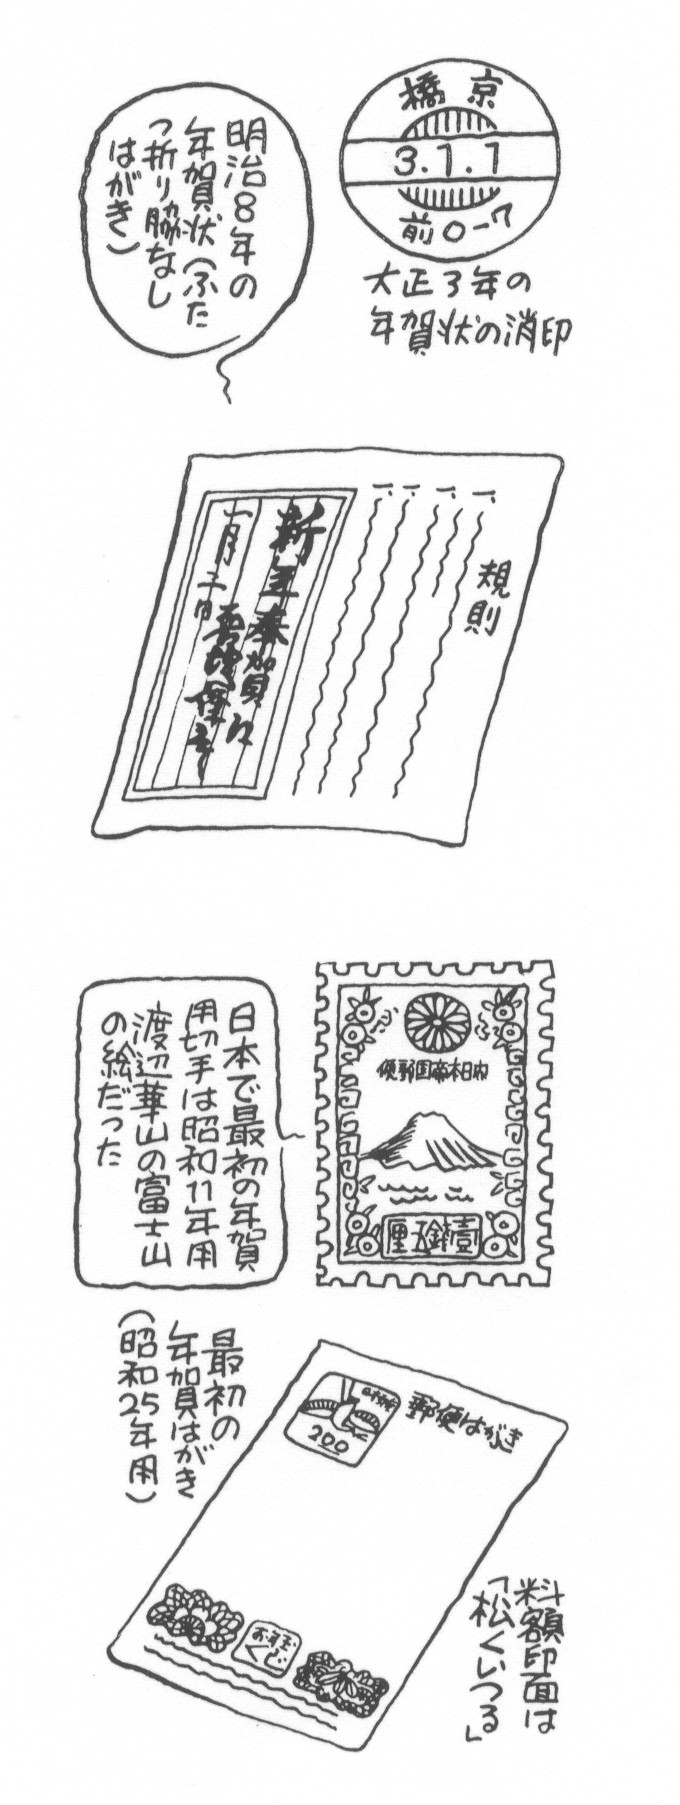 橋京
3.1.1
前0-7
大正3年の
年賀状の消印
明治8年の
年賀状(ふた
つ折り脇なし
はがき)
規則
一、
一、
一、
一、
新年奉賀候
一月三日
日本で最初の年賀
用切手は昭和11年用
渡辺華山の富士山
の絵だった
便郵国帝本日大
壹銭五厘
最初の
年賀はがき
(昭和25年用)
郵便はがき
200
お年玉
くじ
料額印面は
「松くいつる」